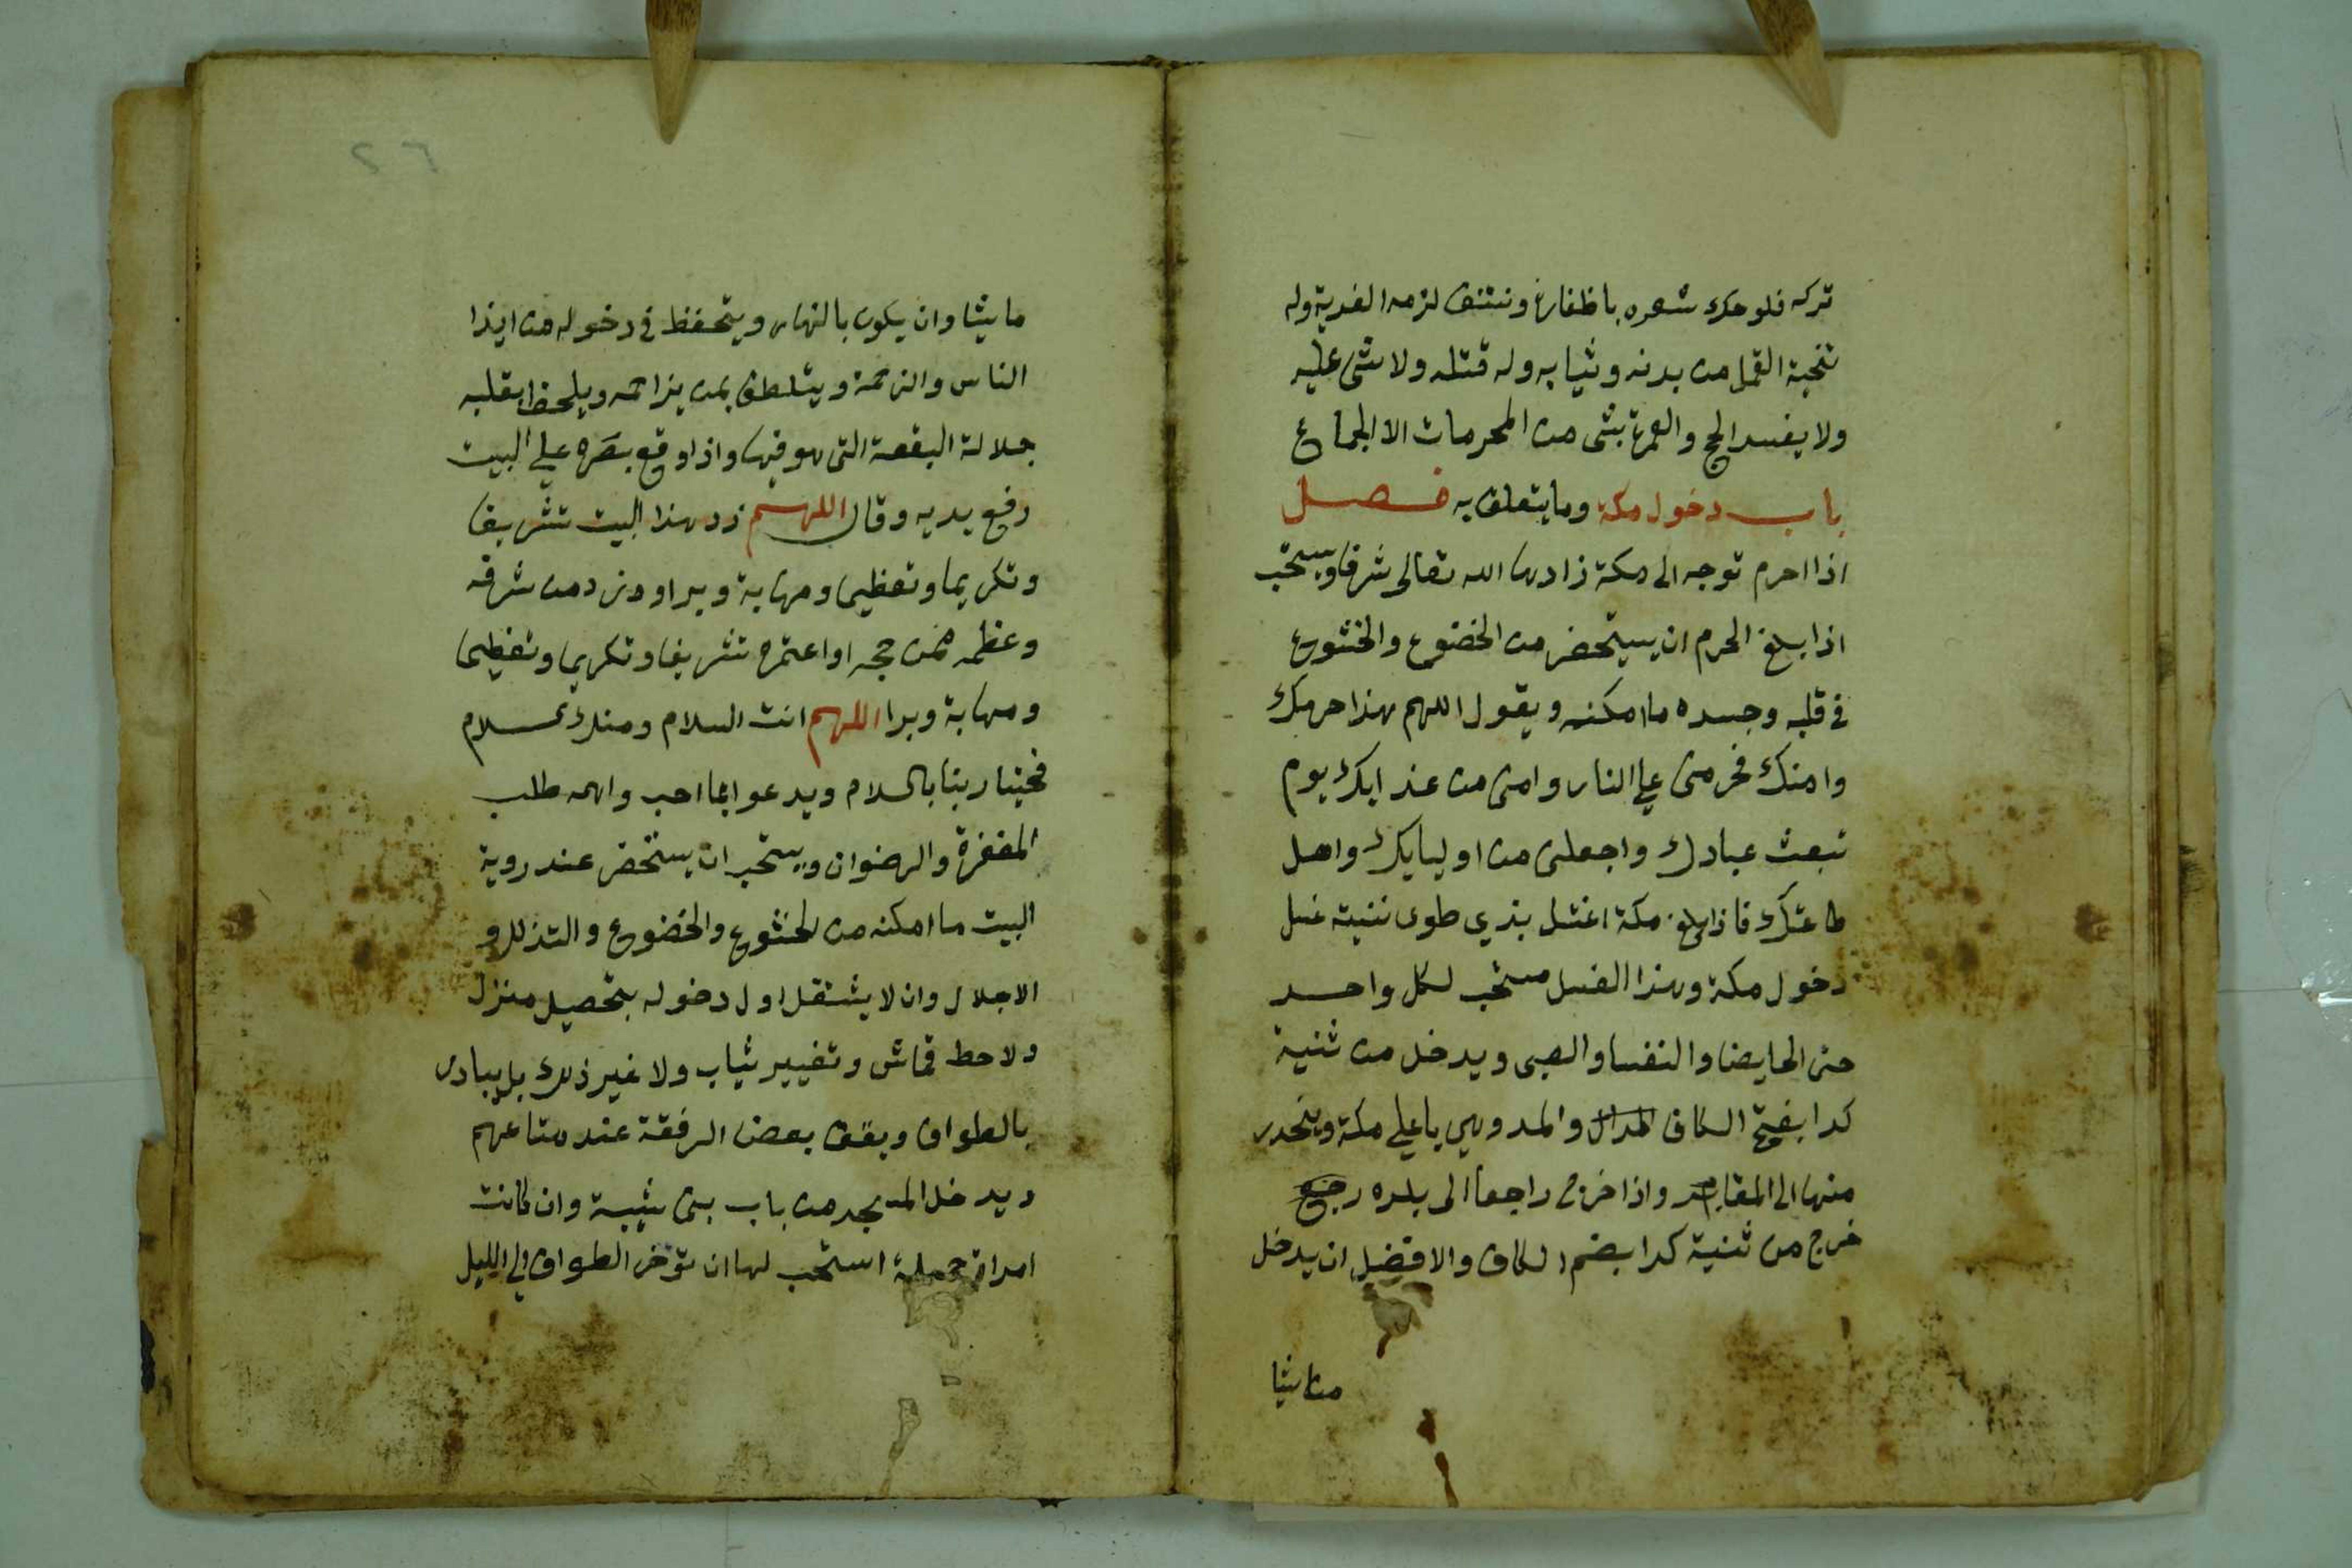 تركه فلو حك شعره باظفاره ونتف لزمه الفدية وله
تنحية القمل من بدنه وثيابه وله قتله ولا شى عليه
ولا يفسد الحج والعمرة بشى من المحرمات الا الجماع
باب دخول مكة وما يتعلق به فصل
اذا احرم توجه الى مكة زادها الله تعالى شرفا ويستحب
اذا بلغ الحرم ان يستحضر من الخضوع والخشوع
في قلبه وجسده ما امكنه ويقول اللهم هذا حرمك
وامنك فحرمنى على النار وامنى من عذابك يوم
تبعث عبادك واجعلنى من اوليايك واهل
طاعتك فاذا بلغ مكة اغتسل بذي طوى بنية غسل
دخول مكة وهذا الغسل مستحب لكل واحد
حتى الحايض والنفسا والصبى ويدخل من ثنية
كدا بفتح الكاف والمد وهي باعلى مكة وينحدر
منها الى المقابر واذا خرج راجعا الى بلده رجع
خرج من ثنية كدا بضم الكاف والافضل ان يدخل
ماشيا
٢٦
ماشيا وان يكون بالنهار ويتحفظ في دخوله من ايذا
الناس والزحمة ويتلطف بمن يزاحمه ويلحظ بقلبه
جلالة البقعة التى هو فيها واذا وقع بصره على البيت
رفع يديه وقال اللهم زد هذا البيت تشريفا
وتكريما وتعظيما ومهابة وبرا وزد من شرفه
وعظمه ممن حجه او اعتمره تشريفا وتكريما وتعظيما
ومهابة وبرا اللهم انت السلام ومنك السلام
فحينا ربنا بالسلام ويدعوا بما احب واهمه طلب
المغفرة والرضوان ويستحب ان يستحضر عند روية
البيت ما امكنه من الخشوع والخضوع والتذلل و
الاجلال وان لا يشتغل اول دخوله بتحصيل منزل
ولا حط قماش وتغيير ثياب ولا غير ذلك بل يبادر
بالطواف ويقف بعض الرفقة عند متاعهم
ويدخل المسجد من باب بنى شيبة وان كانت
امراة جميلة استحب لها ان توخر الطواف الى الليل